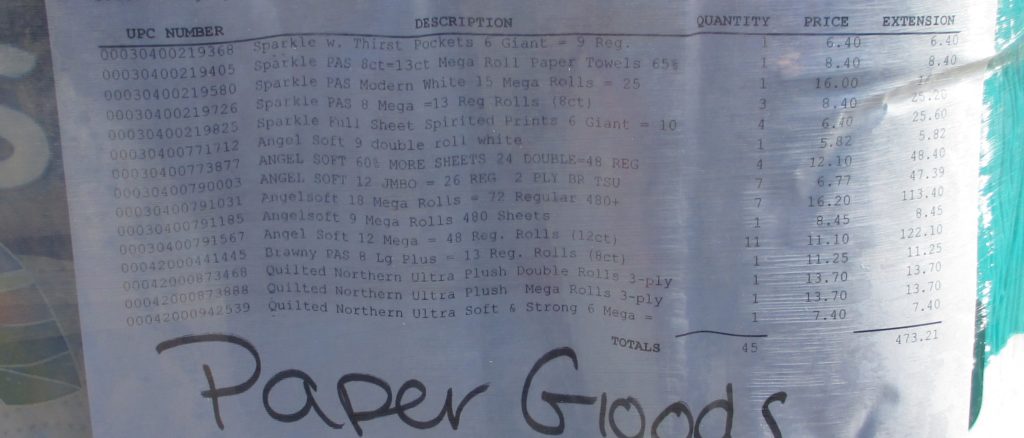 UPC NUMBER DESCRIPTION QUANTITY PRICE EXTENSION
00030400219368 Sparkle w. Thirst Pockets 6 Giant = 9 Reg. 1 6.40 6.40
00030400219405 Sparkle PAS 8ct=13ct Mega Roll Paper Towels 65% 1 8.40 8.40
00030400219580 Sparkle PAS Modern White 15 Mega Rolls = 25 1 16.00
00030400219726 Sparkle PAS 8 Mega =13 Reg Rolls (8ct) 3 8.40 25.20
00030400219825 Sparkle Full Sheet Spirited Prints 6 Giant = 10 4 6.40 25.60
00030400771712 Angel Soft 9 double roll white 1 5.82 5.82
00030400773877 ANGEL SOFT 60% MORE SHEETS 24 DOUBLE=48 REG 4 12.10 48.40
00030400790003 ANGEL SOFT 12 JMBO = 26 REG 2 PLY BR TSU 7 6.77 47.39
00030400791031 Angelsoft 18 Mega Rolls = 72 Regular 480+ 7 16.20 113.40
00030400791185 Angelsoft 9 Mega Rolls 480 Sheets 1 8.45 8.45
00030400791567 Angel Soft 12 Mega = 48 Reg. Rolls (12ct) 11 11.10 122.10
00042000441445 Brawny PAS 8 Lg Plus = 13 Reg. Rolls (8ct) 1 11.25 11.25
00042000873468 Quilted Northern Ultra Plush Double Rolls 3-ply 1 13.70 13.70
00042000873888 Quilted Northern Ultra Plush Mega Rolls 3-ply 1 13.70 13.70
00042000942539 Quilted Northern Ultra Soft & Strong 6 Mega = 1 7.40 7.40
TOTALS 45 473.21
Paper Goods